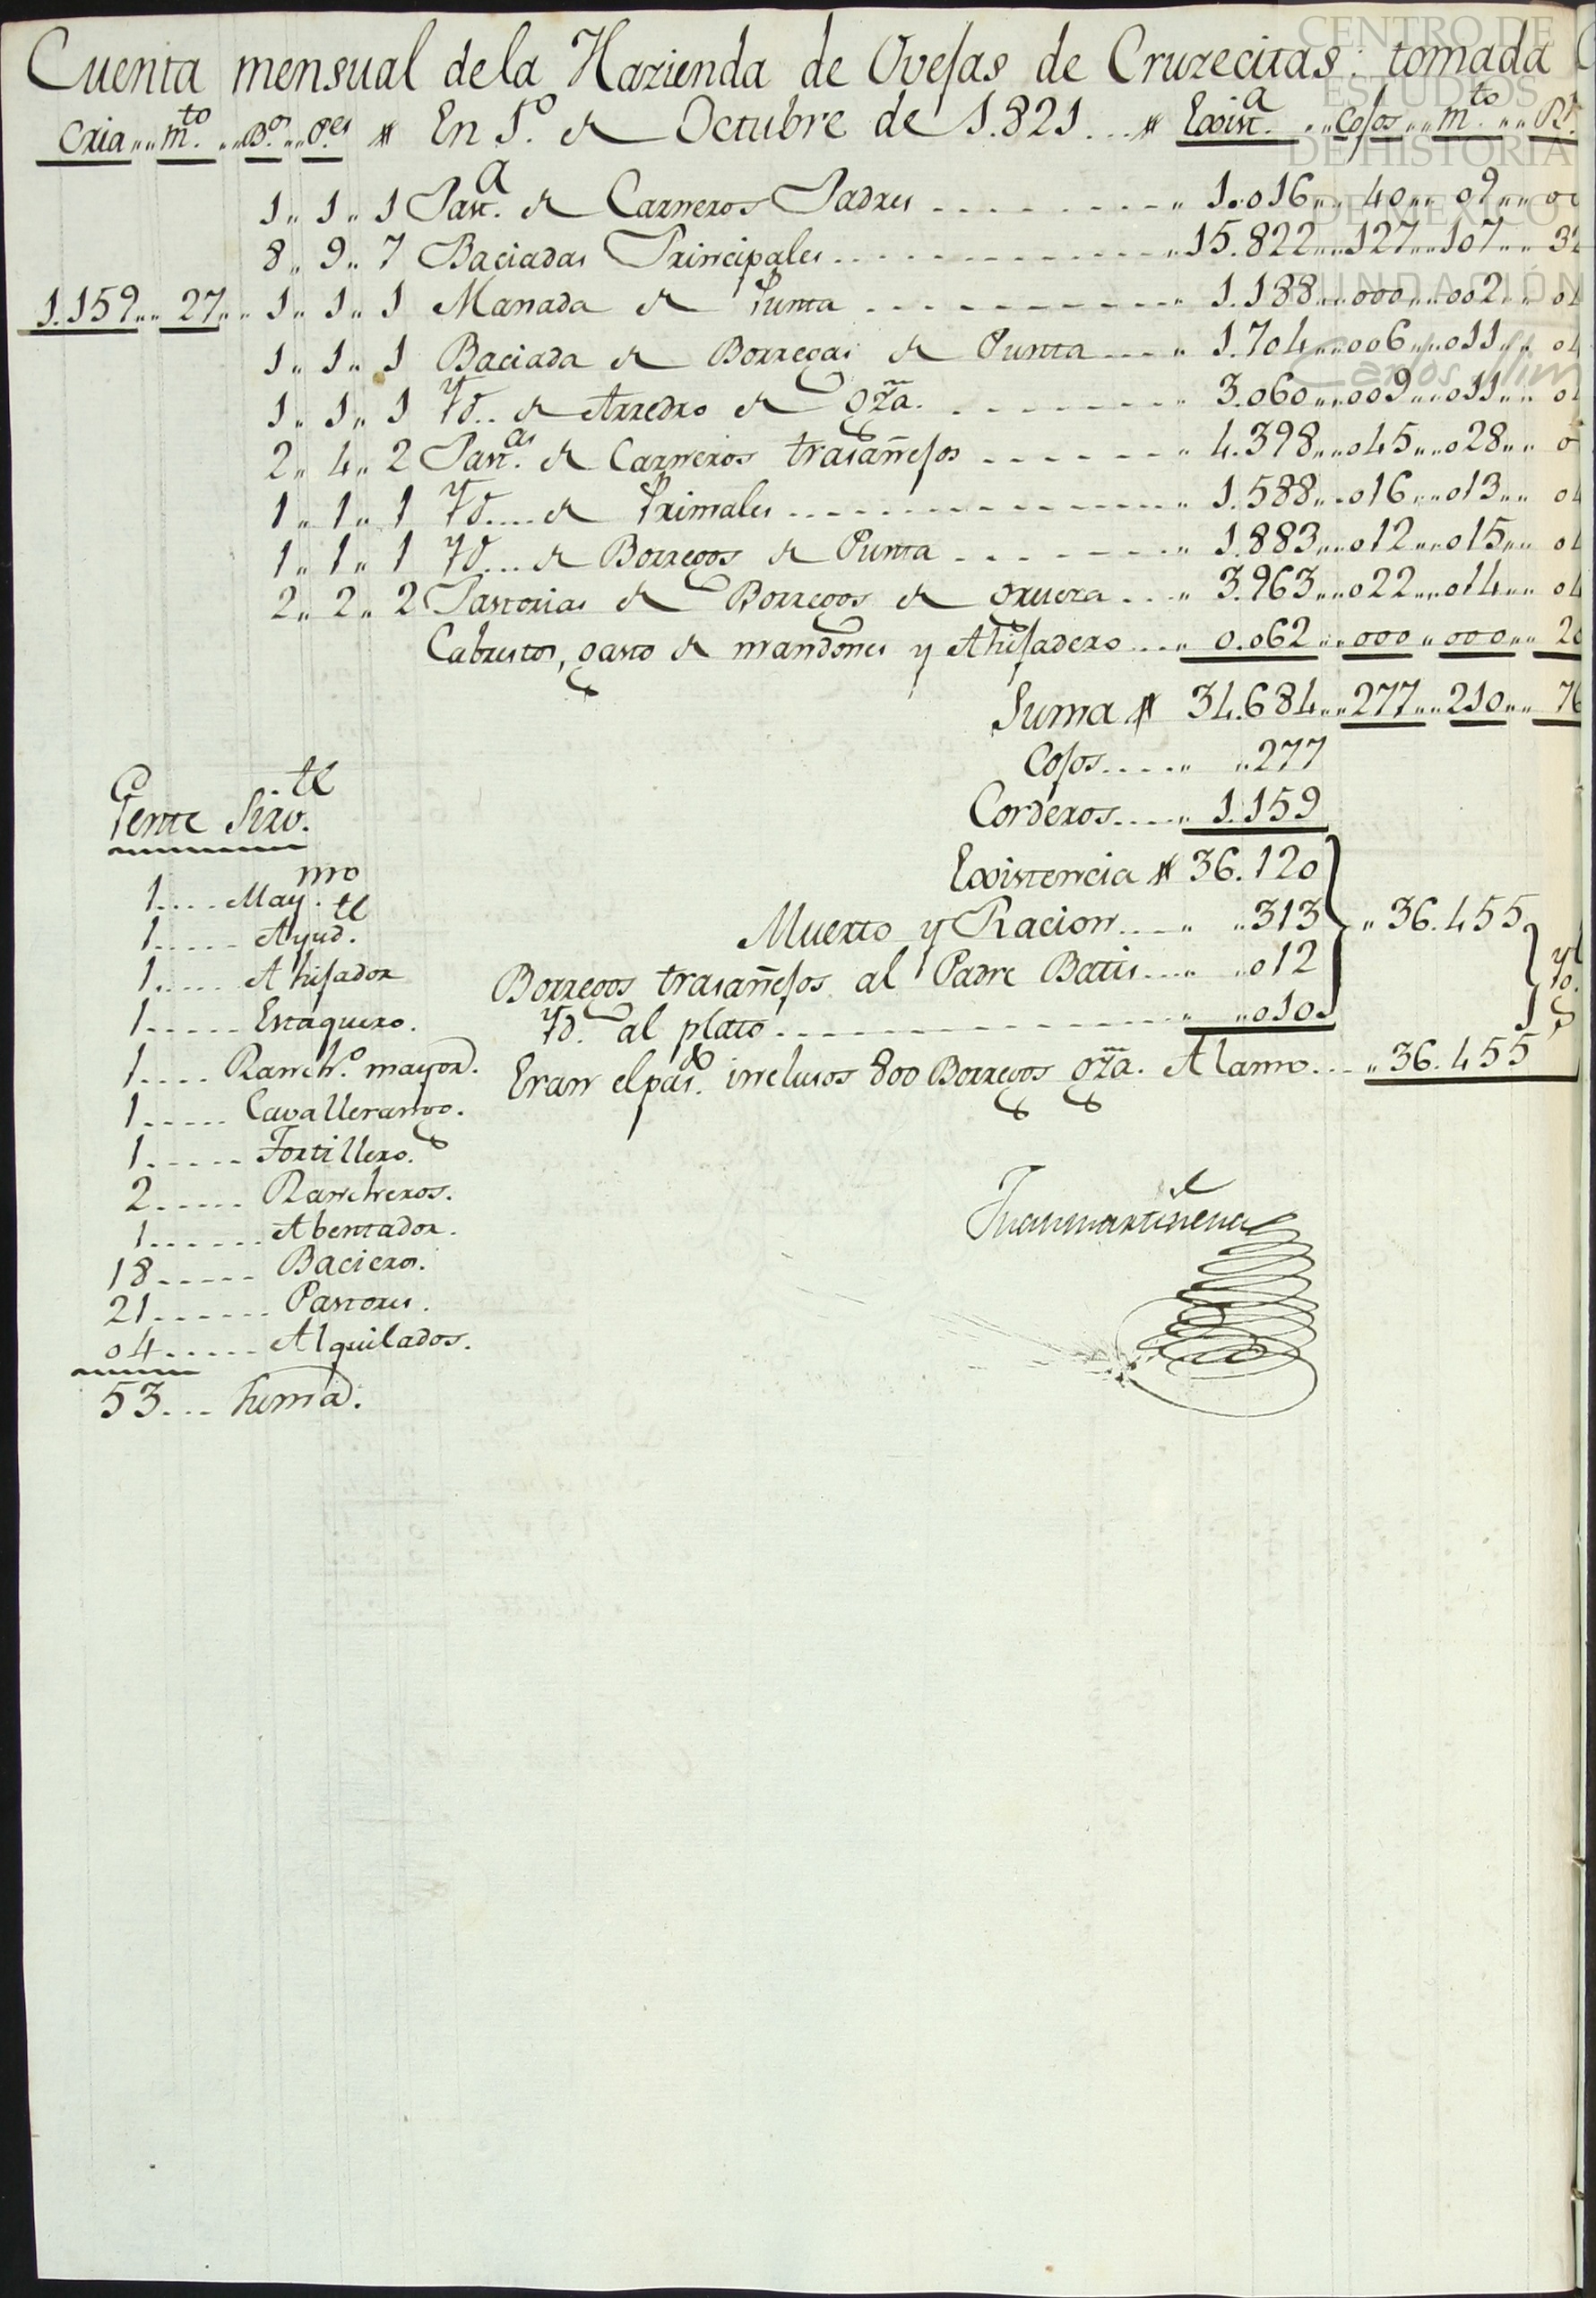 Cuenta mensual de la Hazienda de Ovejas de Cruzecitas: tomada
Cria,, m.to ,, B.os ,, P.es # En 1.º de Octubre de 1.821 ...# Exist.a ,, Cojos ,, m.to ,, R.
1,, 1,, 1 Past.a de Carneros Padres - - - - - - - - ,, 1.016,, 40,, 09,,
8,, 9,, 7 Baciadas Principales - - - - - - - - ,, 15.822,, 127,, 107,, 32
1.159,, 27,, 1,, 1,, 1 Manada de Punta - - - - - - - - ,, 1.188,, 000,, 002,, 04
1,, 1,, 1 Baciada de Borregas de Punta - - - - ,, 1.704,, 006,, 011,, 04
1,, 1,, 1 Yd.. de Arredro de grza. - - - - - - ,, 3.060,, 009,, 011,, 04
2,, 4,, 2 Past.as de Carneros trasañejos - - - - - - ,, 4.398,, 045,, 028,,
1,, 1,, 1 Yd.... de Primales - - - - - - - - ,, 1.588,, 016,, 013,, 04
1,, 1,, 1 Yd.... de Borregos de Punta - - - - - - ,, 1.883,, 012,, 015,, 04
2,, 2,, 2 Pastorias de Borregos de grueza - - - ,, 3.963,, 022,, 014,, 04
Cabrestos, gasto de mandones y Ahijadero ... ,, 0.062,, 000,, 000,, 20
Suma # 34.684,, 277,, 210,, 76
Cojos.... ,, ,,277
Corderos.... ,, 1.159
Existencia # 36.120
Muerto y Racion.... ,, ,,313 ,, 36.455
Borregos trasañejos al Padre Battis.... ,, ,,012
Yd. al plato - - - - - - - - ,, ,,010
Eran el pas.do inclusos 800 Borregos grza. Alamo... ,, 36.455
Gente Sirv.te
1.... May.mo
1..... Ayud.te
1..... Ahijador
1..... Estaquero.
1.... Ranch.º mayor.
1..... Cavallerango.
1..... Tortillero.
2..... Rancheros.
1...... Abentador.
18..... Bacieros.
21...... Pastores.
04..... Alquilados.
53... Suma.
Juan martiñena
CENTRO DE
ESTUDIOS
DE HISTORIA
DE MEXICO
FUNDACIÓN
Carlos Slim